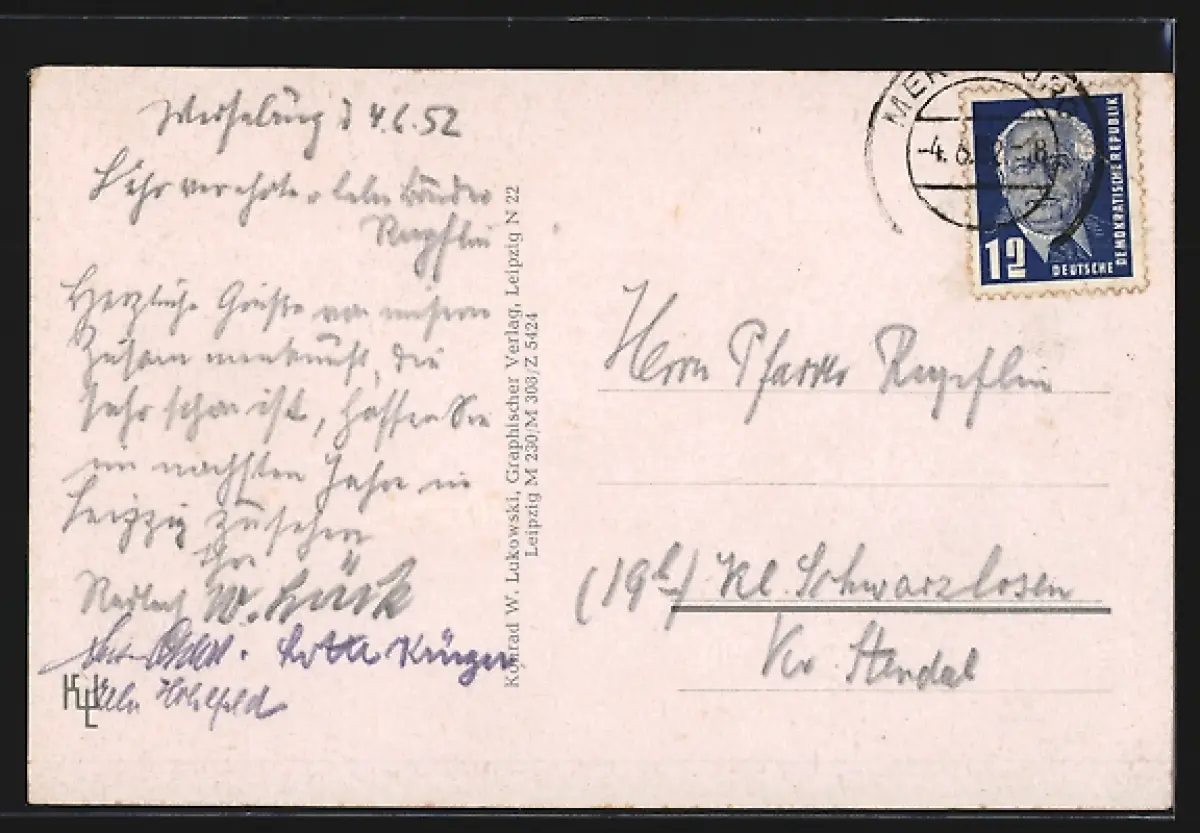 Merseburg d 4.6.52
Sehr verehrter lieber Bruder
Rupflin
Herzliche Grüße von unserer
Zusammenkunft, die
sehr schön ist, hoffen Sie
im nächsten Jahre in
Leipzig zu sehen
Ihr
W. Bück
Krüger
Hohlfeld
KWL
Konrad W. Lukowski, Graphischer Verlag, Leipzig N 22
Leipzig M 230/M 303/Z 5424
-4.6.
12
DEUTSCHE
DEMOKRATISCHE REPUBLIK
Herrn Pfarrer Rupflin
(19b) Kl. Schwarzlosen
Kr Stendal